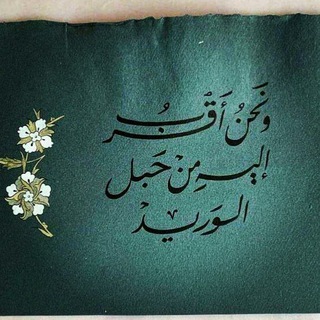 وَنَحنُ أَقرَبُ
إليهِ مِنْ حَبل
الوَريدْ